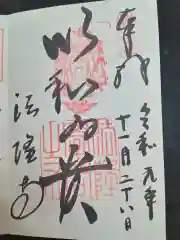 奉拝
令和元年
十一月二十八日
以和為貴
法隆寺